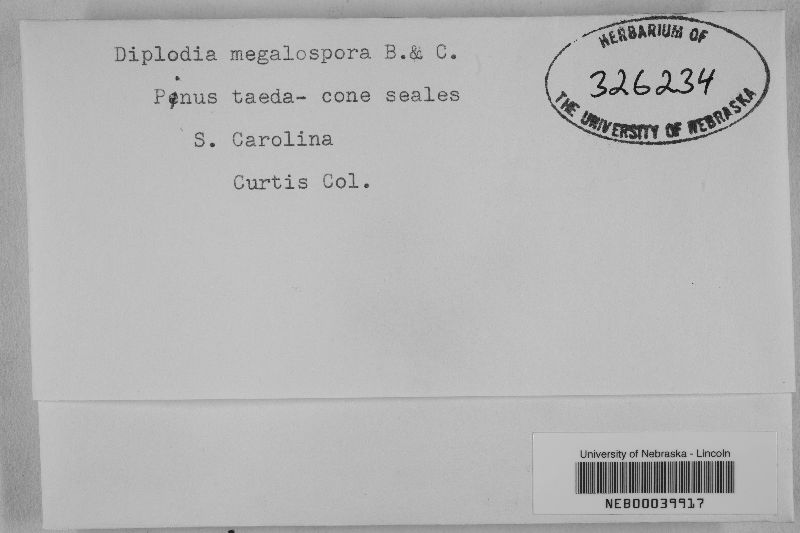 Diplodia megalospora B.& C.
Pinus taeda- cone seales
S. Carolina
Curtis Col.
HERBARIUM OF
326234
THE UNIVERSITY OF NEBRASKA
University of Nebraska - Lincoln
NEB00039917